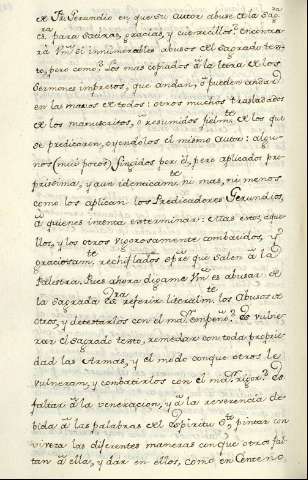 de Fr. Gerundio en que su autor abuse de la Sagra
ra, para satiras, gracias, y cuchufletas? encontra
ra Vm. si innumerables abusos del Sagrado tex
to, pero como? Los mas copiados à la letra de los
Sermones impresos, que andan, ò pueden andar
en las manos de todos: otros muchos trasladados
de los manuscritos, o resumidos fielmte. de los que
se predicaron, oyendolos el mismo autor: algu-
nos (muí pocos) fingidos por él, pero aplicados pro
priísima, y aun identicamte. ni mas, ni menos
como los aplican los Predicadores Gerundios,
à quienes intenta exterminar: mas estos, aque
llos, y los otros vigorosamente combatidos, y
graciosamte. rechiflados siẽpre que salen à la
Palestra. Pues ahora digame Vm. es abusar de
la Sagrada Escra. referir literalmte. los abusos de
otros, y detestarlos con el maỹr. empeño? Es vulne-
rar el Sagrado texto, remedar con toda proprie
dad las armas, y el modo conque otros le
vulneran, y combatirlos con el maỹr. rigor? Es
faltar à la veneracion, y à la reverencia de-
bida à las palabras del Espiritu Sto. pintar con
viveza las diferentes maneras con que otros fal-
tan à ella, y dàr en ellos, como en Centeno